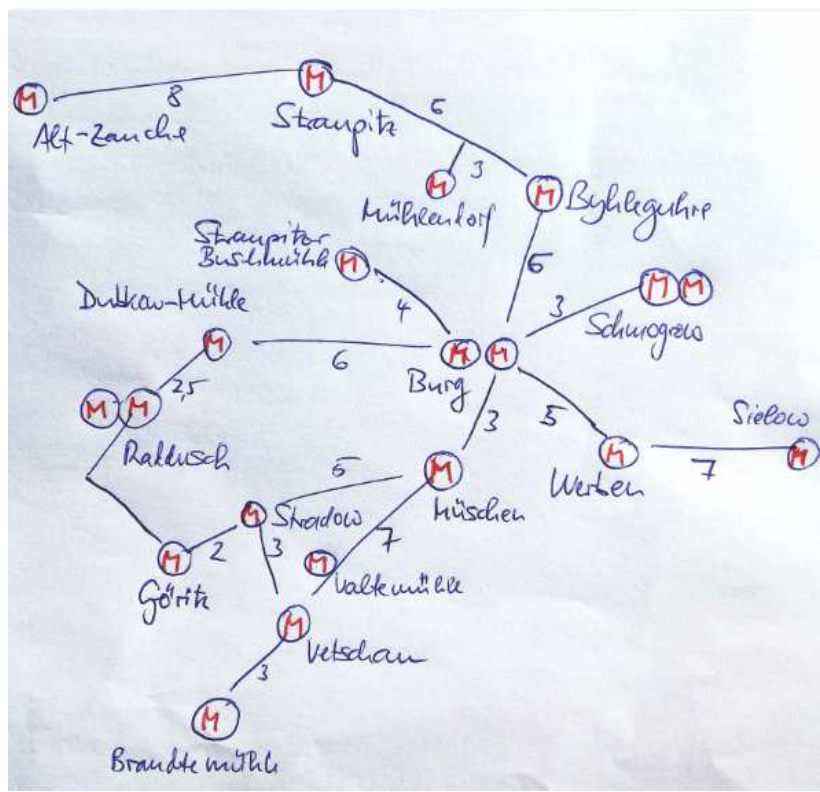 M
8
M
Alt-Zauche
Straupitz
6
M
3
Mühlendorf
M
Byhleguhre
Straupitzer
Buschmühle
M
4
6
3
M M
Schmogrow
Dubkow-Mühle
M
6
M M
Burg
2,5
M M
Raddusch
3
5
Sielow
M
7
M
Werben
5
M
Müschen
M
Stradow
2
3
7
M
Göritz
M
M
Vetschau
3
M
Brandtemühle